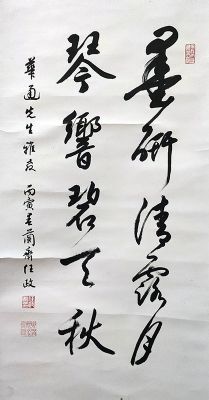 墨研清露月
琴響碧天秋
華通先生雅爱 丙寅春蘭齋汪政